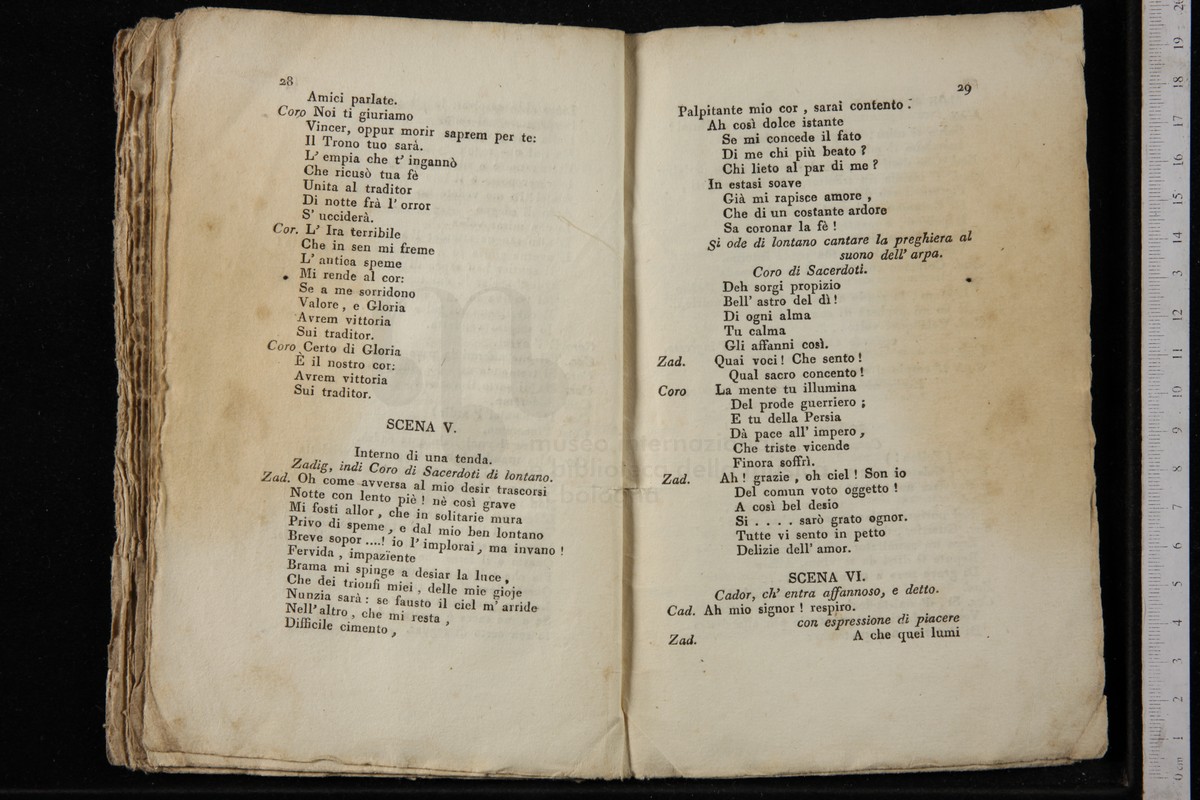 28
Amici parlate.
Coro Noi ti giuriamo
Vincer, oppur morir saprem per te:
Il Trono tuo sarà.
L' empia che t' ingannò
Che ricusò tua fè
Unita al traditor
Di notte frà l' orror
S' ucciderà.
Cor. L' Ira terribile
Che in sen mi freme
L' antica speme
Mi rende al cor:
Se a me sorridono
Valore, e Gloria
Avrem vittoria
Sui traditor.
Coro Certo di Gloria
È il nostro cor:
Avrem vittoria
Sui traditor.
SCENA V.
Interno di una tenda.
Zadig, indi Coro di Sacerdoti di lontano.
Zad. Oh come avversa al mio desir trascorsi
Notte con lento piè! nè così grave
Mi fosti allor, che in solitarie mura
Privo di speme, e dal mio ben lontano
Breve sopor ....! io l' implorai, ma invano!
Fervida, impaziente
Brama mi spinge a desiar la luce,
Che dei trionfi miei, delle mie gioje
Nunzia sarà: se fausto il ciel m' arride
Nell' altro, che mi resta,
Difficile cimento,
29
Palpitante mio cor, sarai contento.
Ah così dolce istante
Se mi concede il fato
Di me chi più beato?
Chi lieto al par di me?
In estasi soave
Già mi rapisce amore,
Che di un costante ardore
Sa coronar la fè!
Si ode di lontano cantare la preghiera al
suono dell' arpa.
Coro di Sacerdoti.
Deh sorgi propizio
Bell' astro del dì!
Di ogni alma
Tu calma
Gli affanni così.
Zad. Quai voci! Che sento!
Qual sacro concento!
Coro La mente tu illumina
Del prode guerriero;
E tu della Persia
Dà pace all' impero,
Che triste vicende
Finora soffrì.
Zad. Ah! grazie, oh ciel! Son io
Del comun voto oggetto!
A così bel desio
Si .... sarò grato ognor.
Tutte vi sento in petto
Delizie dell' amor.
SCENA VI.
Cador, ch' entra affannoso, e detto.
Cad. Ah mio signor! respiro.
con espressione di piacere
Zad. A che quei lumi